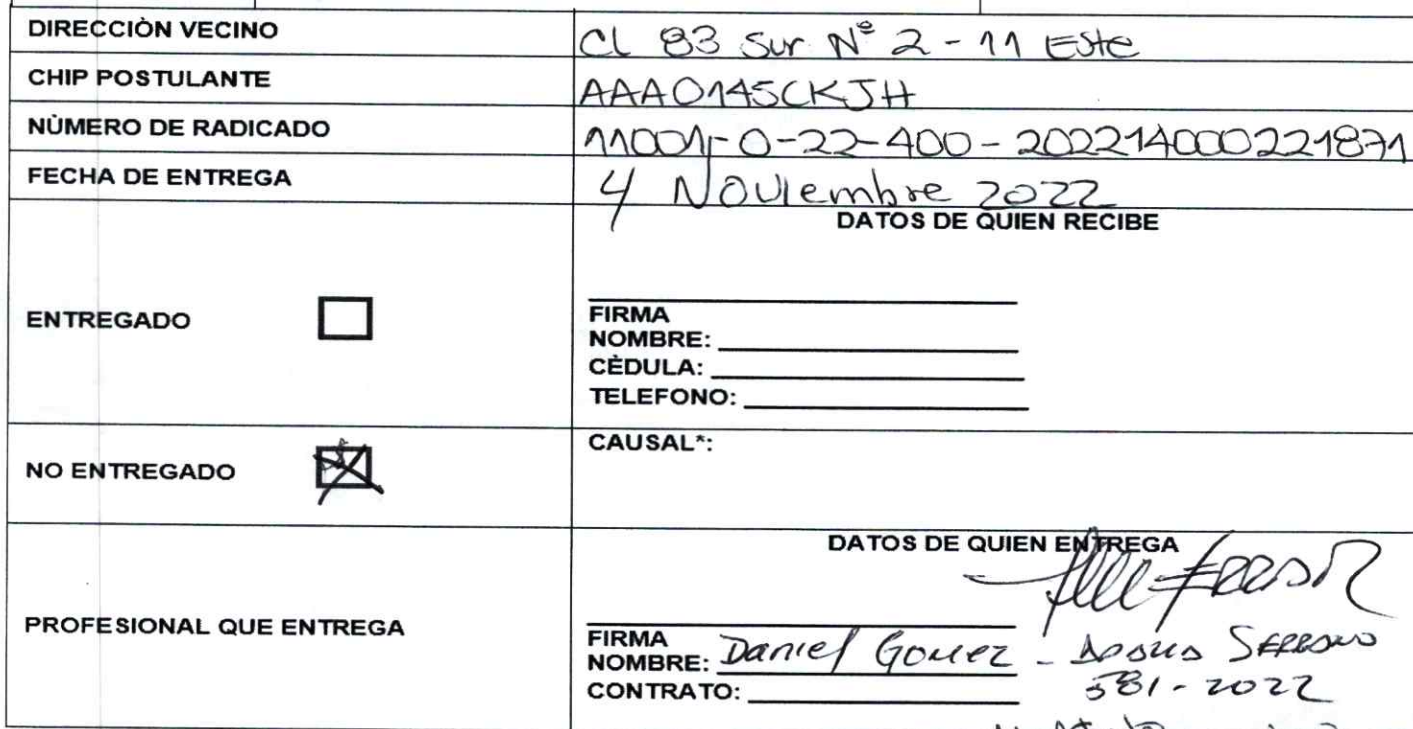 DIRECCIÒN VECINO
CL 83 Sur N° 2 - 11 Este
CHIP POSTULANTE
AAA0145CKJH
NÙMERO DE RADICADO
11001-0-22-400-202214000221871
FECHA DE ENTREGA
4 Noviembre 2022
ENTREGADO
DATOS DE QUIEN RECIBE
FIRMA
NOMBRE:
CÈDULA:
TELEFONO:
NO ENTREGADO
CAUSAL*:
PROFESIONAL QUE ENTREGA
DATOS DE QUIEN ENTREGA
FIRMA
NOMBRE: Daniel Gomez - Serrano
CONTRATO: 581-2022